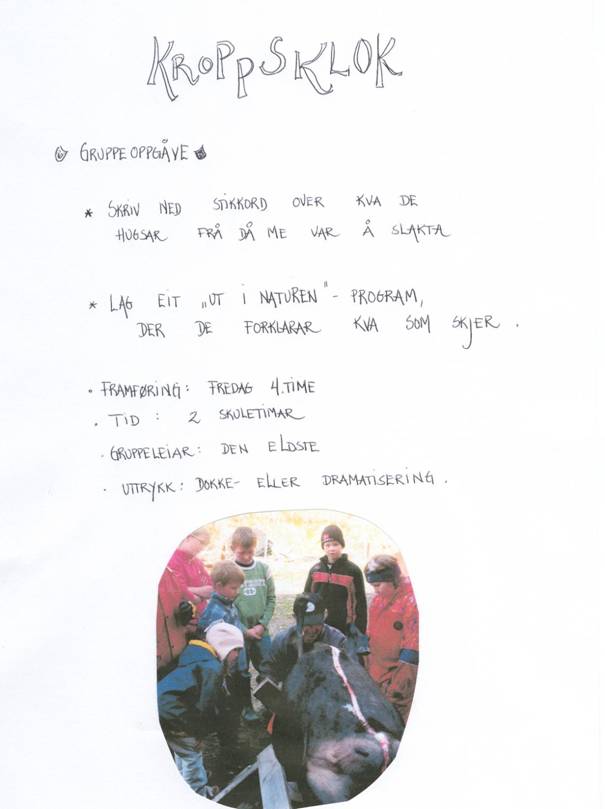 KROPPSKLOK
GRUPPEOPPGÅVE
* SKRIV NED STIKKORD OVER KVA DE
HUGSAR FRÅ DÅ ME VAR Å SLAKTA
* LAG EIT „UT I NATUREN"- PROGRAM,
DER DE FORKLARAR KVA SOM SKJER.
• FRAMFØRING: FREDAG 4.TIME
• TID: 2 SKULETIMAR
• GRUPPELEIAR: DEN ELDSTE
• UTTRYKK: DOKKE- ELLER DRAMATISERING.